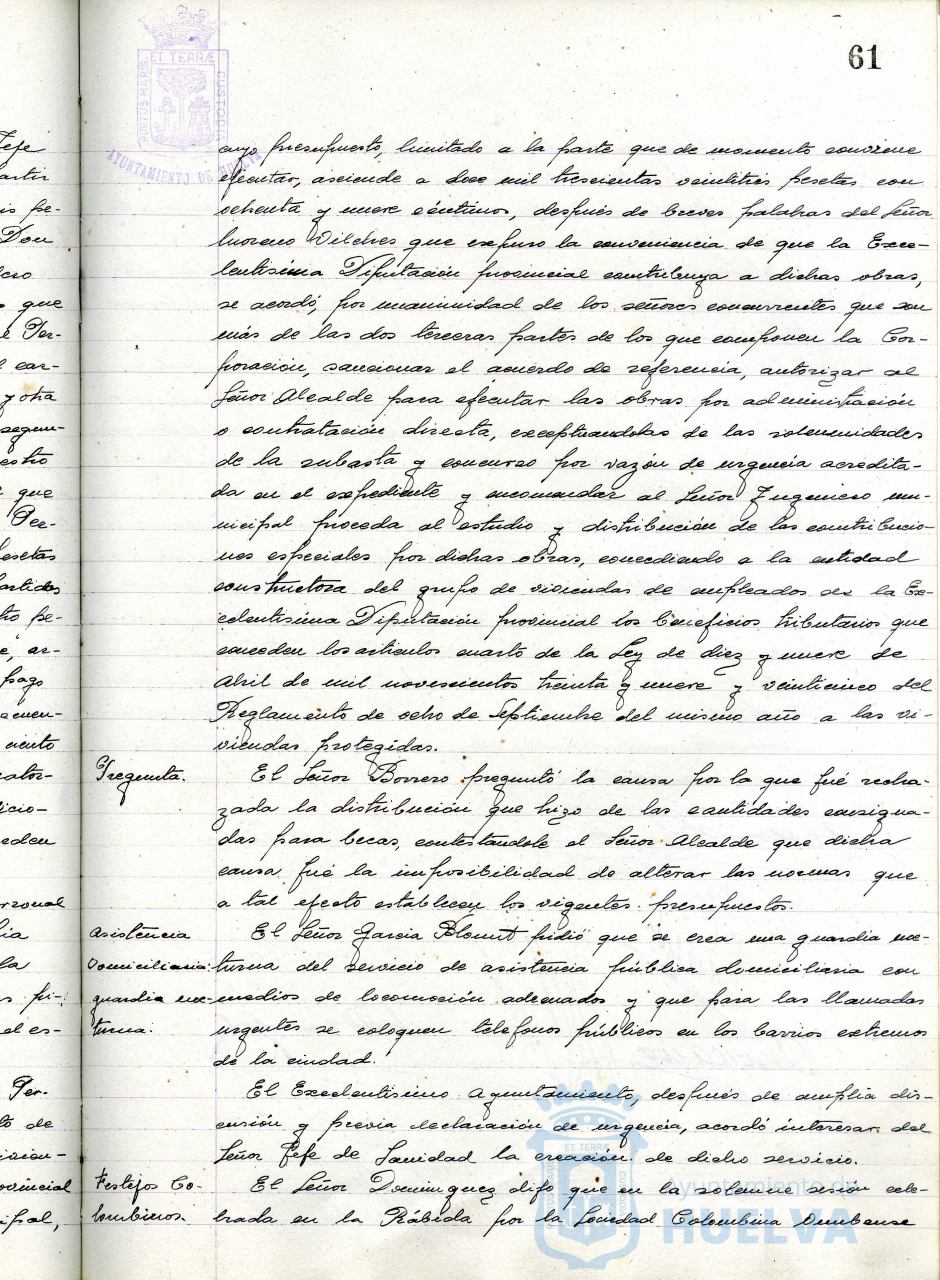 61
PORTUS MARIS ET TERRÆ CUSTODIA
AYUNTAMIENTO DE HUELVA
cuyo presupuesto, limitado a la parte que de momento conviene
ejecutar, asciende a doce mil trescientas veintitres pesetas con
ochenta y nueve céntimos, después de breves palabras del Señor
Moreno Vilches que expuso la conveniencia de que la Exce-
lentísima Diputación provincial contribuya a dichas obras,
se acordó, por unanimidad de los señores concurrentes que son
más de las dos terceras partes de los que componen la Cor-
poración, sancionar el acuerdo de referencia, autorizar al
Señor Alcalde para ejecutar las obras por administración
o contratación directa, exceptuandolas de las solemnidades
de la subasta y concurso por razón de urgencia acredita-
da en el expediente y encomendar al Señor Ingeniero mu-
nicipal proceda al estudio y distribución de las contribucio-
nes especiales por dichas obras, concediendo a la entidad
constructora del grupo de viviendas de empleados de la Ex-
celentísima Diputación provincial los beneficios tributarios que
conceden los articulos cuarto de la Ley de diez y nueve de
Abril de mil novecientos treinta y nueve y veinticinco del
Reglamento de ocho de Septiembre del mismo año a las vi-
viendas protegidas.
Pregunta.
El Señor Borrero preguntó la causa por la que fué recha-
zada la distribución que hizo de las cantidades consigna-
das para becas, contestandole el Señor Alcalde que dicha
causa fué la imposibilidad de alterar las normas que
a tal efecto establecen los vigentes presupuestos.
Asistencia
Domiciliaria:
guardia noc-
turna.
El Señor Garcia Blount pidió que se crea una guardia noc-
turna del servicio de asistencia pública domiciliaria con
medios de locomoción adecuados y que para las llamadas
urgentes se coloquen telefonos públicos en los barrios extremos
de la ciudad.
El Excelentísimo Ayuntamiento, después de amplia dis-
cusión y previa declaración de urgencia, acordó interesar del
Señor Jefe de Sanidad la creación de dicho servicio.
Festejos Co-
lombinos.
El Señor Dominguez dijo que en la solemne sesión cele-
brada en la Rábida por la Sociedad Colombina Onubense
Ayuntamiento de
HUELVA